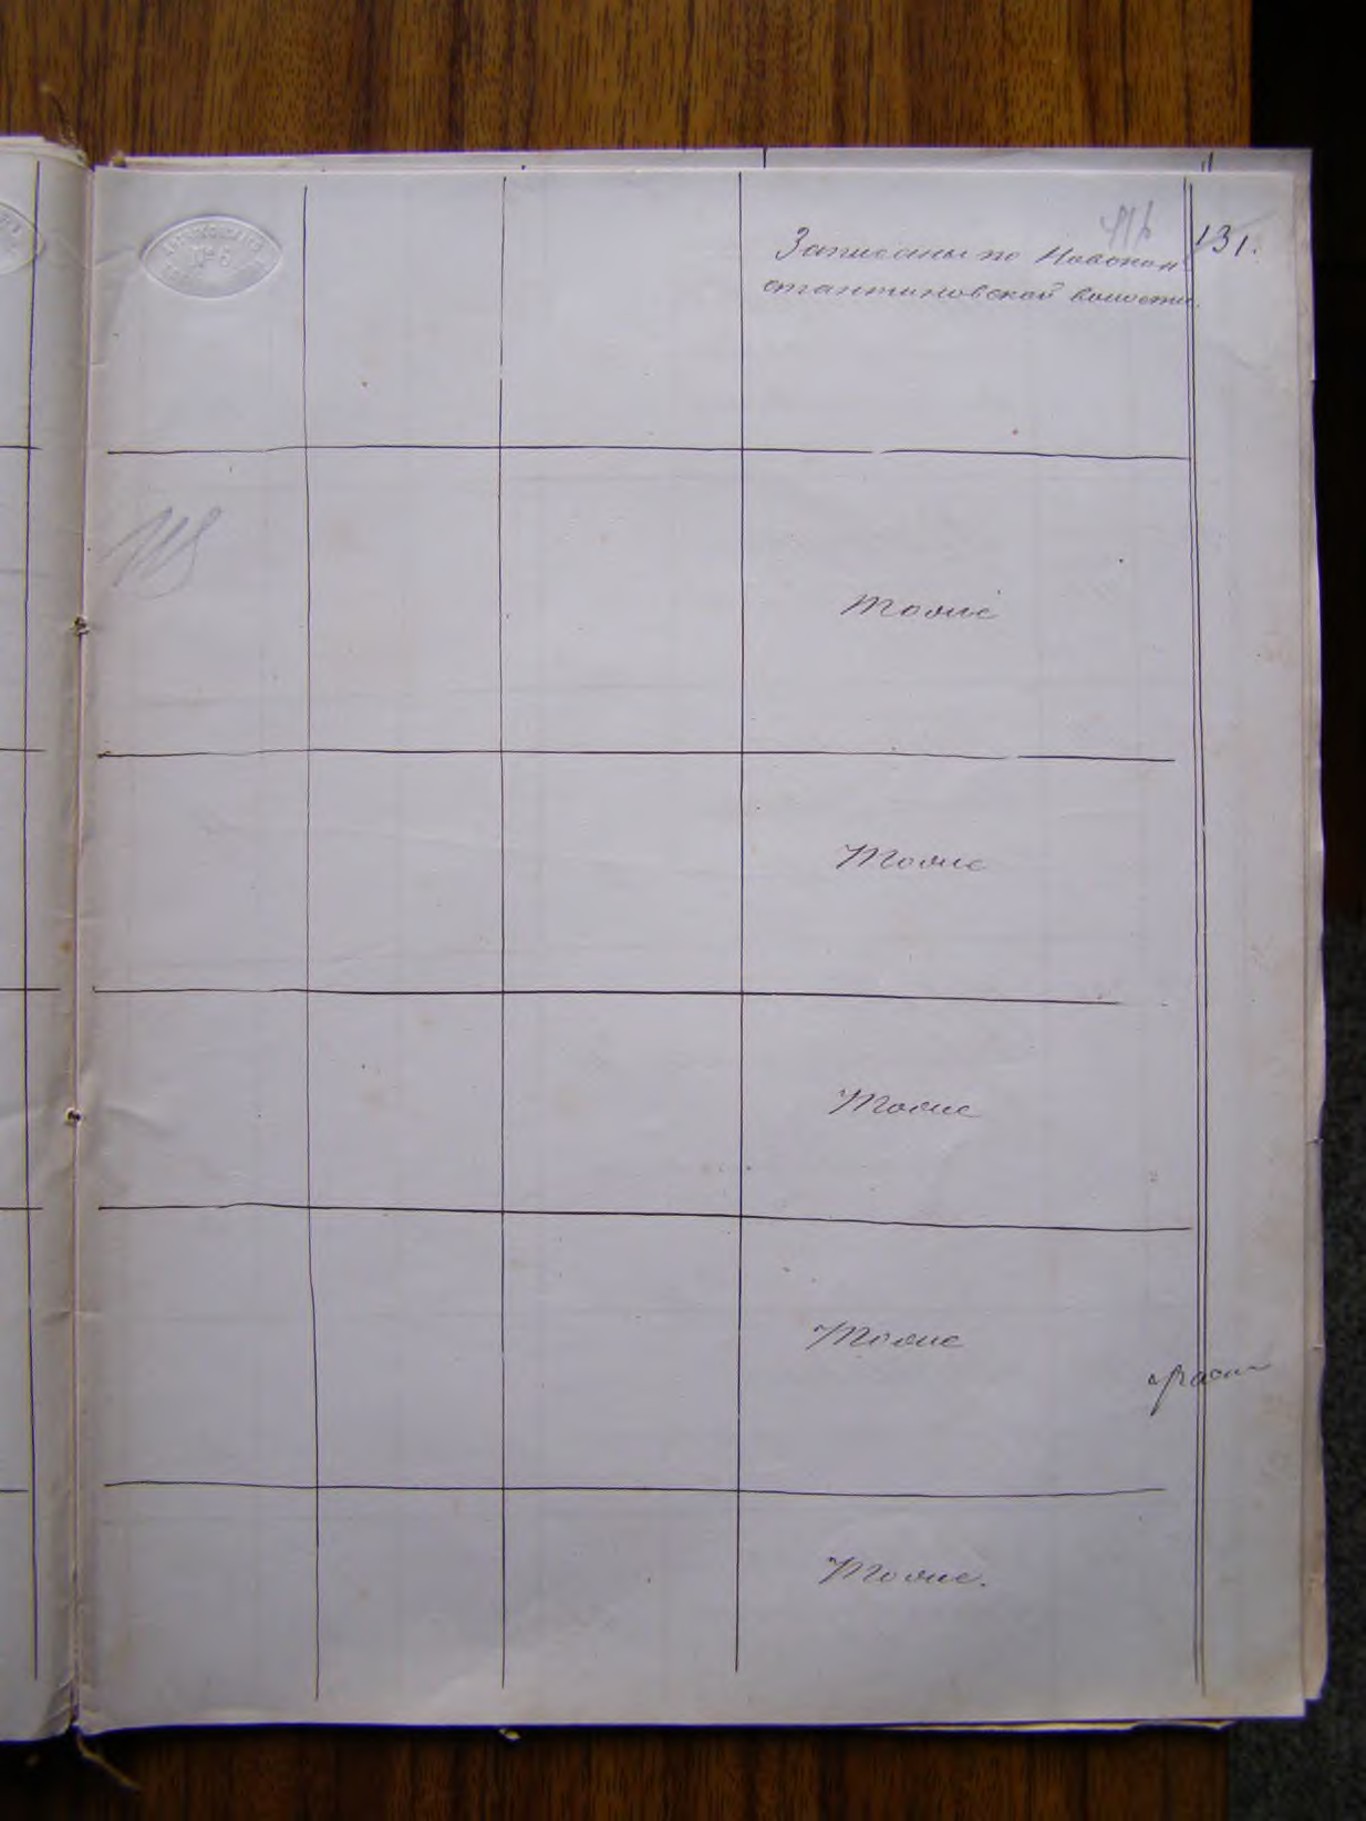 131.
Записаны по Новокон
стантиновской волости.
№ 6
Тоже
Тоже
Тоже
Тоже
Тоже.